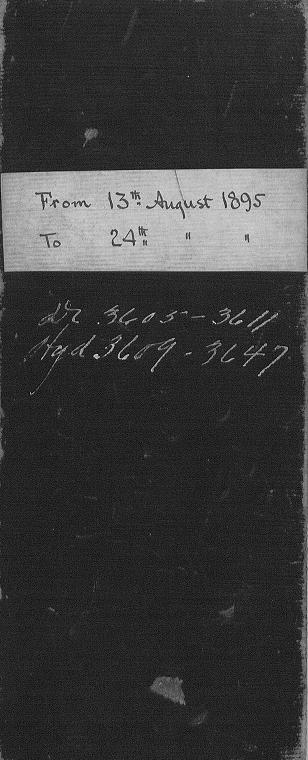 From 13th August 1895
To 24th " "
Dr. 3605 - 3611
Hyd 3609 - 3647